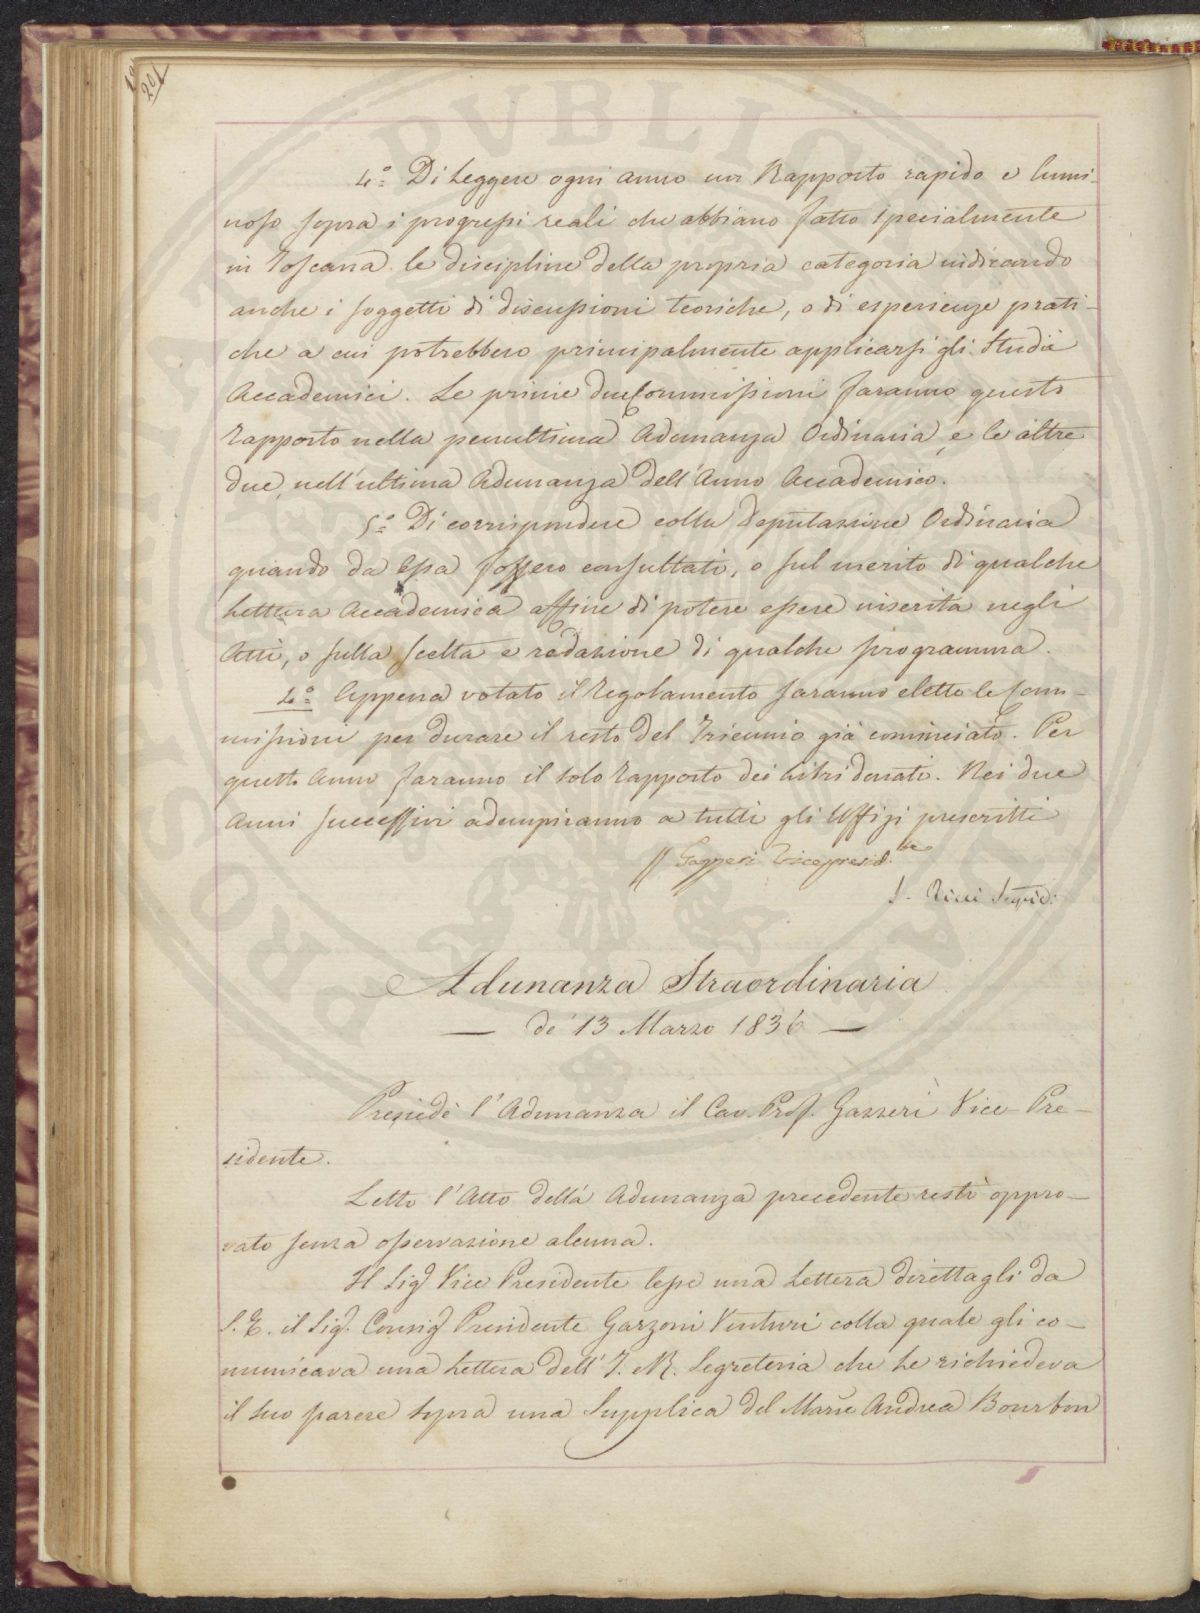 201
4.° Di Leggere ogni anno un Rapporto rapido e lumi-
noso sopra i progressi reali che abbiano fatto specialmente
in Toscana le discipline della propria categoria indicando
anche i soggetti di discussioni teoriche, o di esperienze prati-
che a cui potrebbero principalmente applicarsi gli Studii
Accademici. Le prime due Commissioni faranno questo
rapporto nella penultima Adunanza Ordinaria, e le altre
due, nell'ultima Adunanza dell'Anno Accademico.
5.° Di corrispondere colla Deputazione Ordinaria
quando da Essa fossero consultati, o sul merito di qualche
Lettura Accademica affine di potere essere inserita negli
Atti, o sulla scelta e redazione di qualche programma.
2.° Appena votato il Regolamento saranno elette le Com-
missioni per durare il resto del Triennio già cominciato. Per
quest. Anno faranno il solo rapporto dei Libri donati. Nei due
Anni successivi adempiranno a tutti gli Uffizi prescritti
G Gazzeri Vicepresid.te
L. Ricci Segrio:
Adunanza Straordinaria
— de' 13 Marzo 1836 —
Presiedè l'Adunanza il Cav. Prof. Gazzeri Vice-Pre-
sidente.
Letto l'Atto della Adunanza precedente restò appro-
vato senza osservazione alcuna.
Il Sig.r Vice Presidente lesse una Lettera direttagli da
S. E. il Sig. Consig Presidente Garzoni Venturi colla quale gli co-
municava una Lettera dell'I. e R. Segreteria che Le richiedeva
il suo parere sopra una Supplica del March Andrea Bourbon
PVBLIC